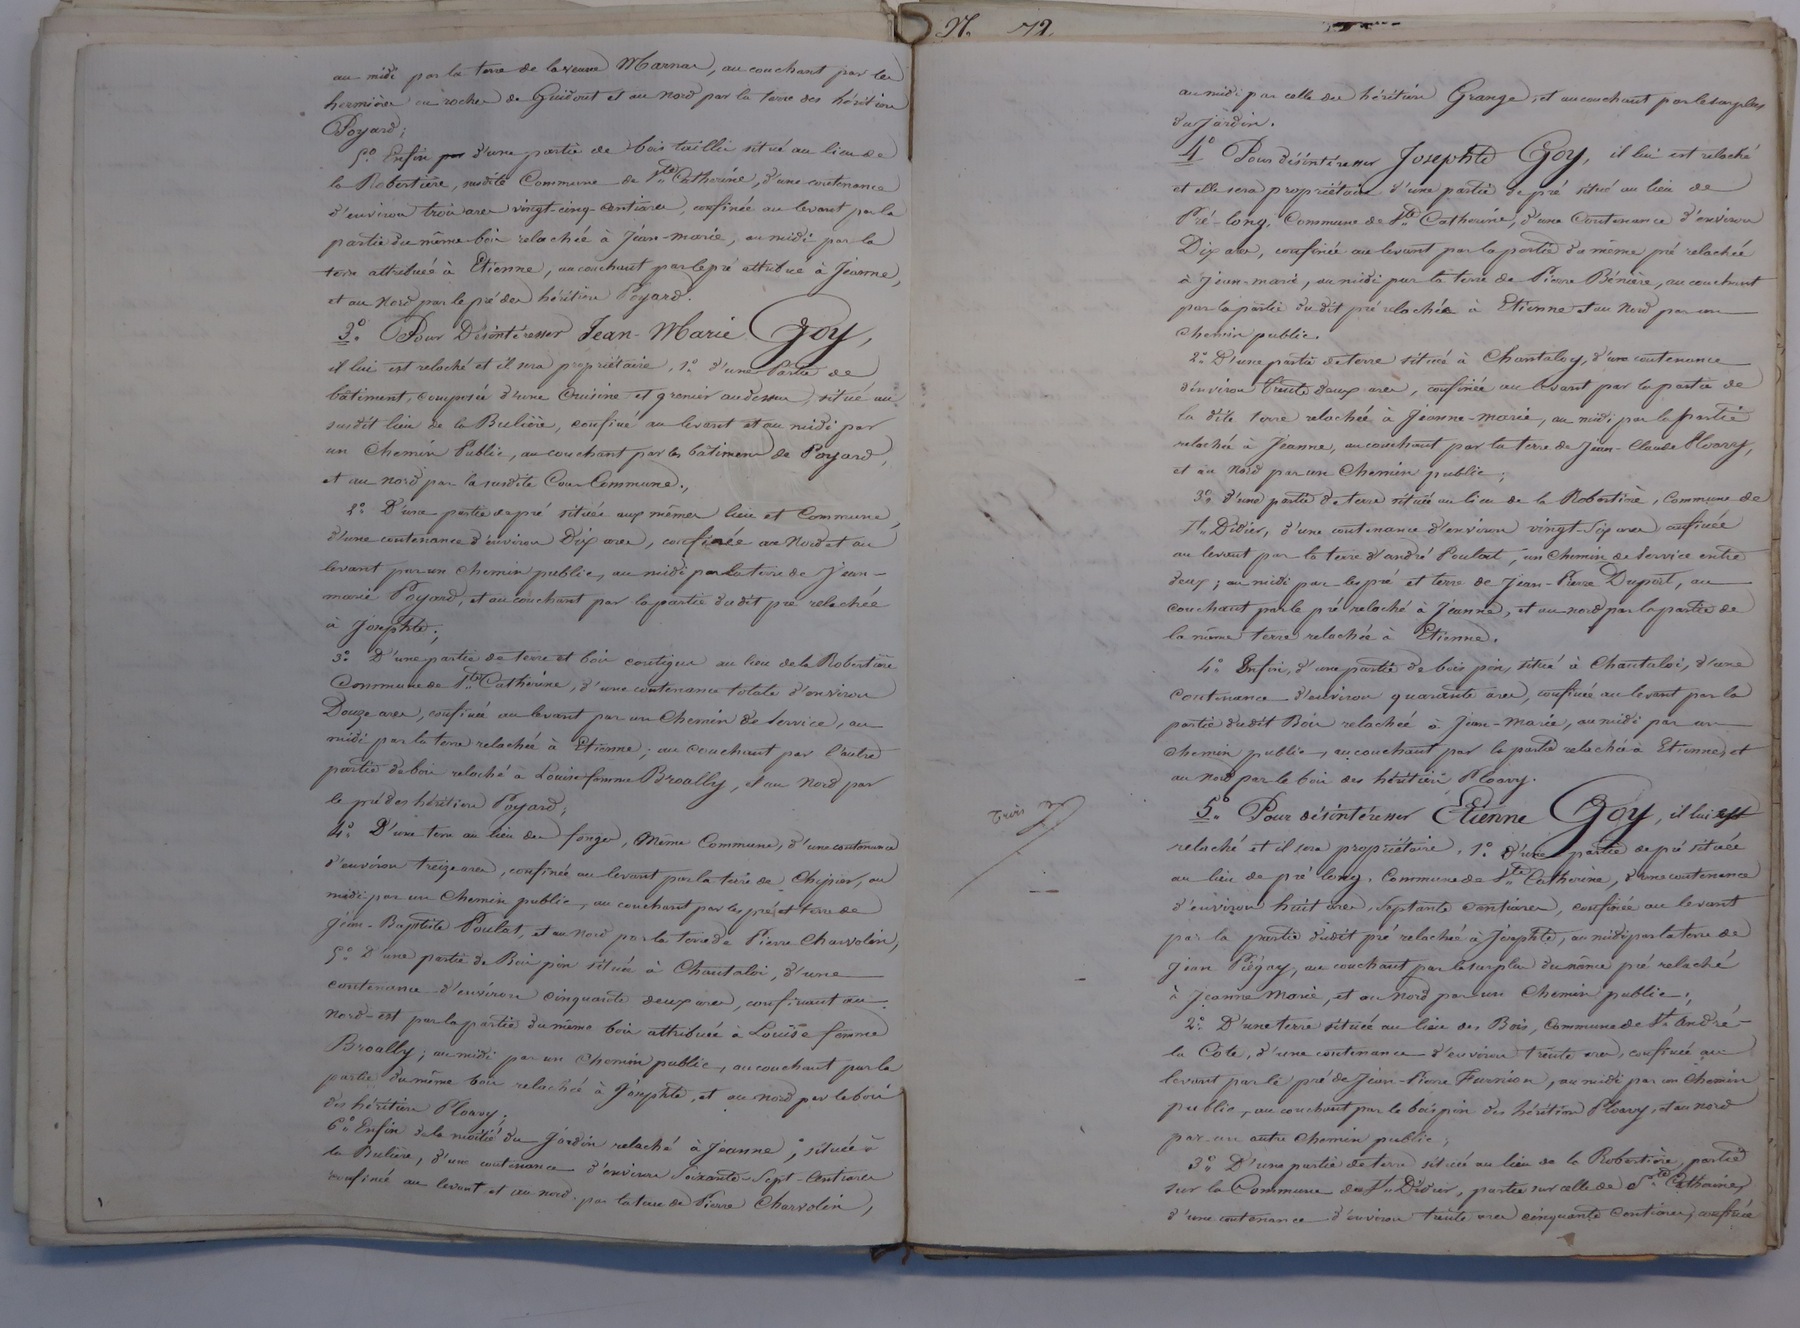 au midi par la terre de la veuve Marnas, au couchant par les
hermières ou rocher de Guidout et au nord par la terre des héritiers
Poyard;
5.o Enfin d'une partie de bois taillis situé au lieu de
la Robertière, susdite Commune de Ste Catherine, d'une contenance
d'environ trois ares vingt-cinq-centiares, confinée au levant par la
partie du même bois relachée à Jean-marie, au midi par la
terre attribuée à Etienne, au couchant par le pré attribué à Jeanne,
et au Nord par le pré des héritiers Poyard.
3.o Pour Désintéresser Jean-Marie Goy,
il lui est relaché et il sera propriétaire, 1.o d'une Partie de
bâtiment, composée d'une Cuisine et grenier au dessus, situé au
susdit lieu de la Bulière, confiné au levant et au midi par
un Chemin Public, au couchant par les bâtiments de Poyard,
et au nord par la susdite Cour Commune.,
2.o D'une partie de pré située aux mêmes lieu et Commune,
d'une contenance d'environ Dix ares, confinée au Nord et au
levant par un chemin public, au midi par la terre de Jean-
marie Poyard, et au couchant par la partie dudit pré relachée
à Josephte;
3.o D'une partie de terre et bois contigus au lieu de la Robertière
Commune de Ste Catherine, d'une contenance totale d'environ
Douze ares, confinée au levant par un Chemin de Service, au
midi par la terre relachée à Etienne; au couchant par l'autre
partie de bois relaché à Louise femme Broally, et au Nord par
le pré des héritiers Poyard;
4.o D'une terre au lieu des fonges, Même Commune, d'une contenance
d'environ treize ares, confinée au levant par la terre de Chipier, au
midi par un Chemin public, au couchant par les pré et terre de
Jean-Baptiste Poulat, et au Nord par la terre de Pierre Charvolin,
5.o D'une partie de Bois pin située à Chantaloi, d'une
contenance d'environ cinquante deux ares, confinant au
Nord-est par la partie du même bois attribuée à Louise femme
Broally; au midi par un Chemin public, au couchant par la
partie du même bois relachée à Josephte, et au nord par le bois
des héritiers Ploavy;
6.o Enfin de la moitié du Jardin relaché à Jeanne, située à
la Bulière, d'une contenance d'environ Soixante-Sept-Centiares
confinée au levant et au nord par la terre de Pierre Charvolin,
N. 72.
au midi par celle des héritiers Grange, et au couchant par le surplus
du jardin.
4.o Pour désintéresser Josephte Goy, il lui est relaché
et elle sera propriétaire d'une partie de pré situé au lieu de
Pré-long, Commune de Ste Catherine, d'une Contenance d'environ
Dix ares, confinée au levant par la partie du même pré relachée
à Jean-marie, au midi par la terre de Pierre Bénière, au couchant
par la partie dudit pré relachée à Etienne et au Nord par un
chemin public.
2.o D'une partie de terre située à Chantaloy, d'une contenance
d'environ trente deux ares, confinée au levant par la partie de
la dite terre relachée à Jeanne-marie, au midi par la partie
relachée à Jeanne, au couchant par la terre de Jean-Claude Ploavy,
et au Nord par un Chemin public;
3.o d'une partie de terre située au lieu de la Robertière, Commune de
St. Didier, d'une contenance d'environ vingt-Six ares confinée
au levant par la terre d'andré Poulat, un Chemin de Service entre
deux; au midi par les pré et terre de Jean-Pierre Duport, au
couchant par le pré relaché à Jeanne, et au nord par la partie de
la même terre relachée à Etienne.
4.o Enfin, d'une partie de bois pin, situé à Chantaloi, d'une
contenance d'environ quarante ares, confinée au levant par la
partie dudit Bois relachée à Jean-Marie, au midi par un
chemin public, au couchant par la partie relachée à Etienne, et
au nord par le bois des héritiers Ploavy.
5.o Pour désintéresser Etienne Goy, il lui est
relaché et il sera propriétaire, 1.o d'une partie de pré située
au lieu de pré long, Commune de Ste Catherine, d'une contenance
d'environ huit ares, Septante centiares, confinée au levant
par la partie dudit pré relachée à Josephte, au midi par la terre de
Jean Piégay, au couchant par le surplus du même pré relaché
à Jeanne Marie, et au Nord par un Chemin public;
2.o D'une terre située au lieu des Bois, Commune de St André-
la Côte, d'une contenance d'environ trente ares, confinée au
levant par le pré de Jean-Pierre Furnion, au midi par un Chemin
public, au couchant par le bois pin des héritiers Ploavy, et au nord
par un autre Chemin public;
3.o D'une partie de terre située au lieu de la Robertière, partie
sur la Commune de St. Didier, partie sur celle de Ste Catherine,
d'une contenance d'environ trente ares cinquante Centiares, confinée